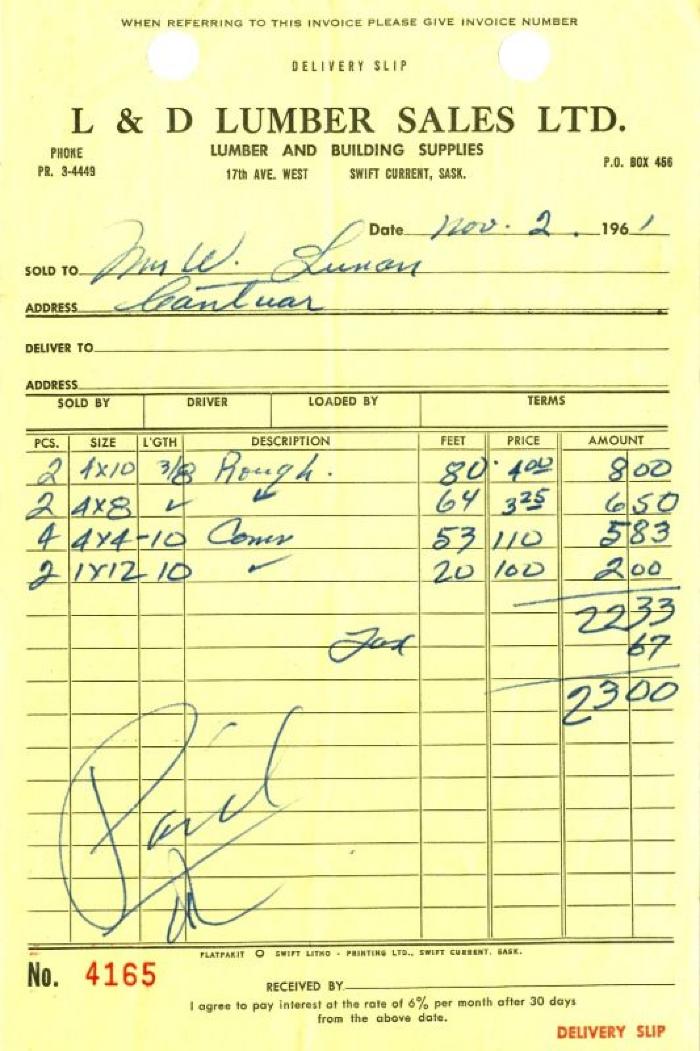 WHEN REFERRING TO THIS INVOICE PLEASE GIVE INVOICE NUMBER
DELIVERY SLIP
L & D LUMBER SALES LTD.
PHONE PR. 3-4449
LUMBER AND BUILDING SUPPLIES
17th AVE. WEST SWIFT CURRENT, SASK.
P.O. BOX 456
Date Nov. 2. 1961
SOLD TO W. Lunan
ADDRESS Cantuar
DELIVER TO
ADDRESS
SOLD BY DRIVER LOADED BY TERMS
PCS. SIZE L'GTH DESCRIPTION FEET PRICE AMOUNT
2 4x10 3/8 Rough. 80 4 00 8 00
2 4x8 ✓ ✓ 64 3 25 6 50
4 4x4-10 Comn 53 110 5 83
2 1x12-10 ✓ 20 100 2 00
22 33
Tax 67
23 00
Paid
PLATPAKIT SWIFT LITHO - PRINTING LTD., SWIFT CURRENT, SASK.
No. 4165
RECEIVED BY
I agree to pay interest at the rate of 6% per month after 30 days
from the above date.
DELIVERY SLIP